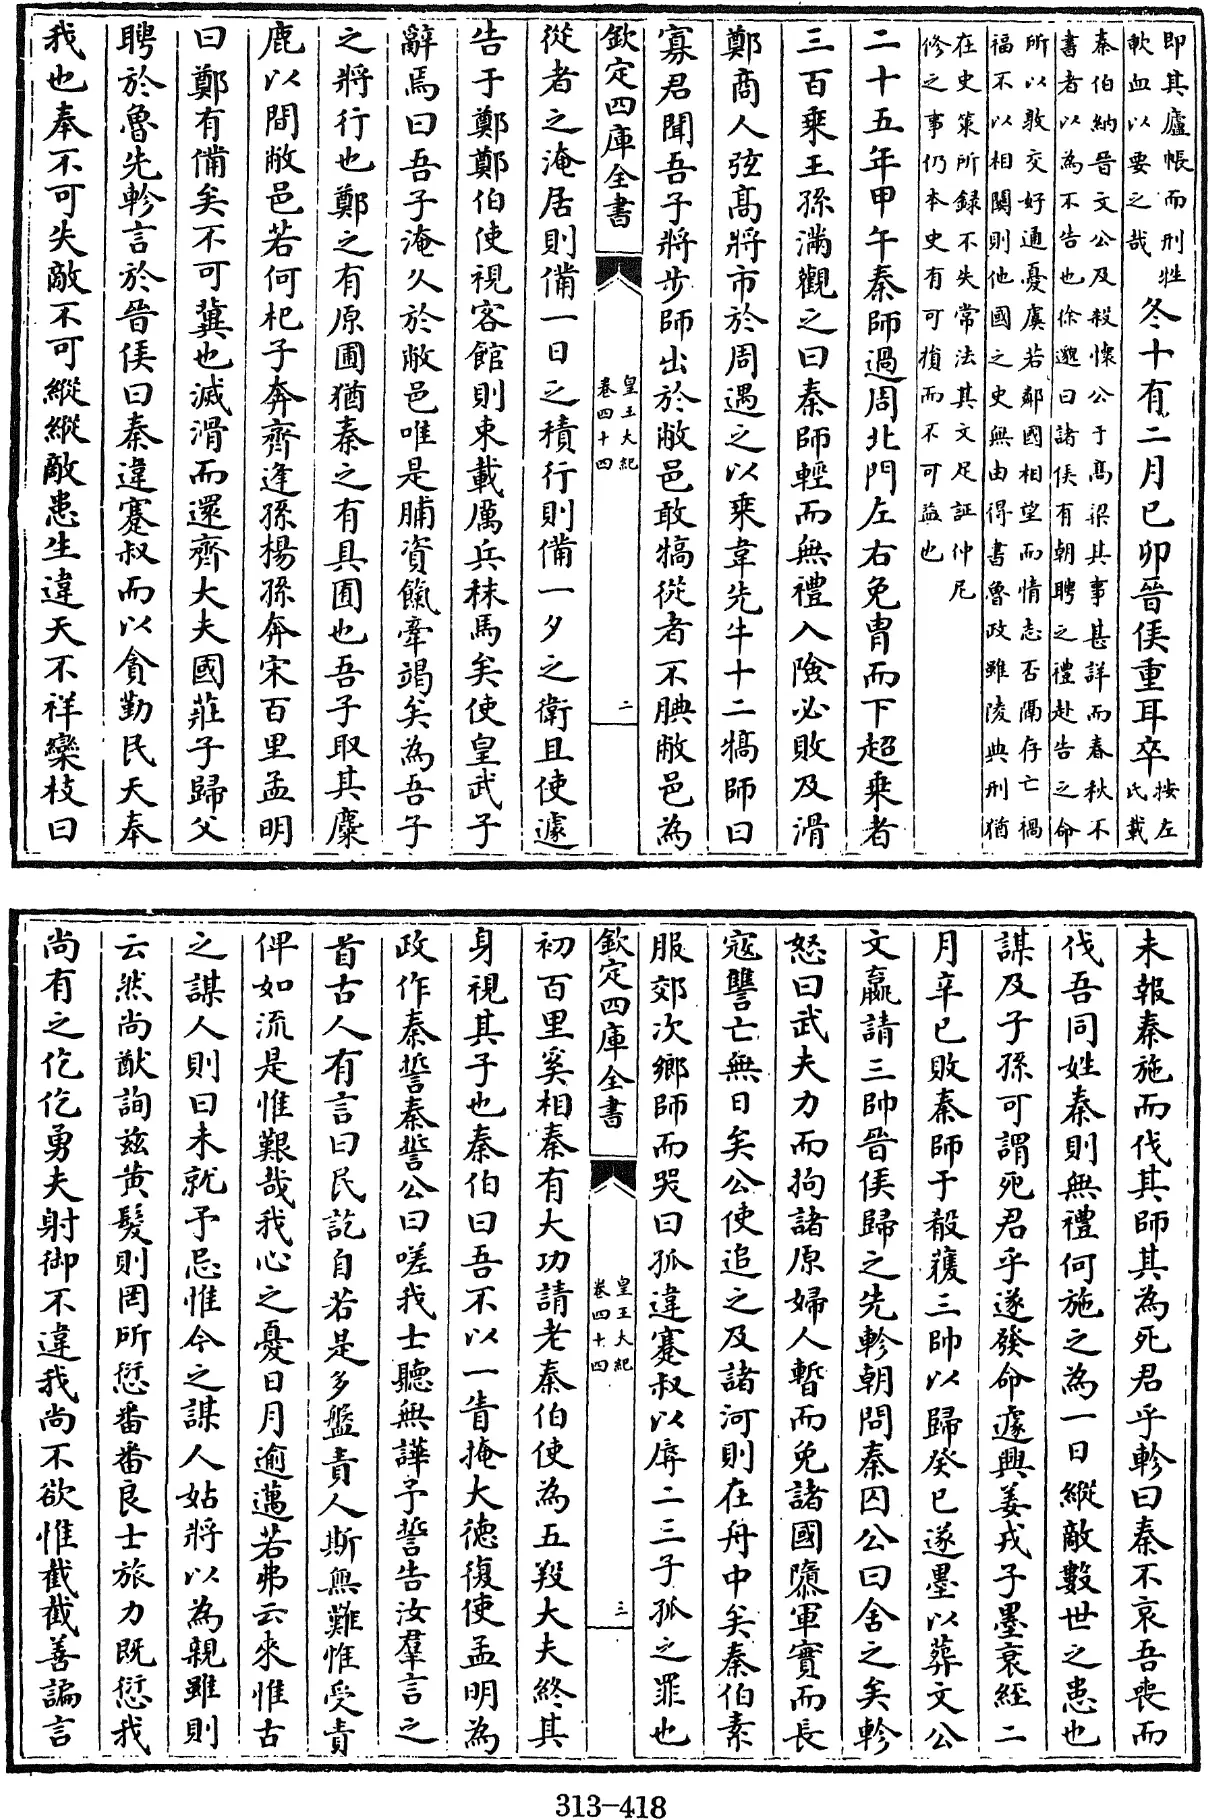 即其廬帳而刑牲
歃血以要之哉
冬十有二月己卯晉侯重耳卒
按左
氏載
秦伯納晉文公及殺懷公于髙梁其事甚詳而春秋不
書者以為不告也徐邈曰諸侯有朝聘之禮赴告之命
所以敦交好通憂虞若鄰國相望而情志否隔存亡禍
福不以相關則他國之史無由得書魯政雖陵典刑猶
在史策所録不失常法其文足証仲尼
修之事仍本史有可損而不可益也
二十五年甲午秦師過周北門左右免冑而下超乘者
三百乘王孫滿觀之曰秦師輕而無禮入險必敗及滑
鄭商人弦髙將市於周遇之以乘韋先牛十二犒師曰
寡君聞吾子將步師出於敝邑敢犒從者不腆敝邑為
欽定四庫全書
皇王大紀
卷四十四
二
從者之淹居則備一日之積行則備一夕之衛且使遽
告于鄭鄭伯使視客館則束載厲兵秣馬矣使皇武子
辭焉曰吾子淹久於敝邑唯是脯資餼牽竭矣為吾子
之將行也鄭之有原圃猶秦之有具囿也吾子取其麋
鹿以間敝邑若何杞子奔齊逢孫楊孫奔宋百里孟明
曰鄭有備矣不可冀也滅滑而還齊大夫國莊子歸父
聘於魯先軫言於晉侯曰秦違蹇叔而以貪勤民天奉
我也奉不可失敵不可縱縱敵患生違天不祥欒枝曰
未報秦施而伐其師其為死君乎軫曰秦不哀吾喪而
伐吾同姓秦則無禮何施之為一日縱敵數世之患也
謀及子孫可謂死君乎遂發命遽興姜戎子墨衰絰二
月辛巳敗秦師于殽獲三帥以歸癸巳遂墨以葬文公
文嬴請三帥晉侯歸之先軫朝問秦囚公曰舍之矣軫
怒曰武夫力而拘諸原婦人暫而免諸國隳軍實而長
寇讐亡無日矣公使追之及諸河則在舟中矣秦伯素
服郊次鄉師而哭曰孤違蹇叔以辱二三子孤之罪也
欽定四庫全書
皇王大紀
卷四十四
三
初百里奚相秦有大功請老秦伯使為五羖大夫終其
身視其子也秦伯曰吾不以一眚掩大德復使孟明為
政作秦誓秦誓公曰嗟我士聽無譁予誓告汝羣言之
首古人有言曰民訖自若是多盤責人斯無難惟受責
俾如流是惟艱哉我心之憂日月逾邁若弗云來惟古
之謀人則曰未就予忌惟今之謀人姑將以為親雖則
云然尚猷詢兹黄髮則罔所愆番番良士旅力既愆我
尚有之仡仡勇夫射御不違我尚不欲惟截截善諞言
313-418